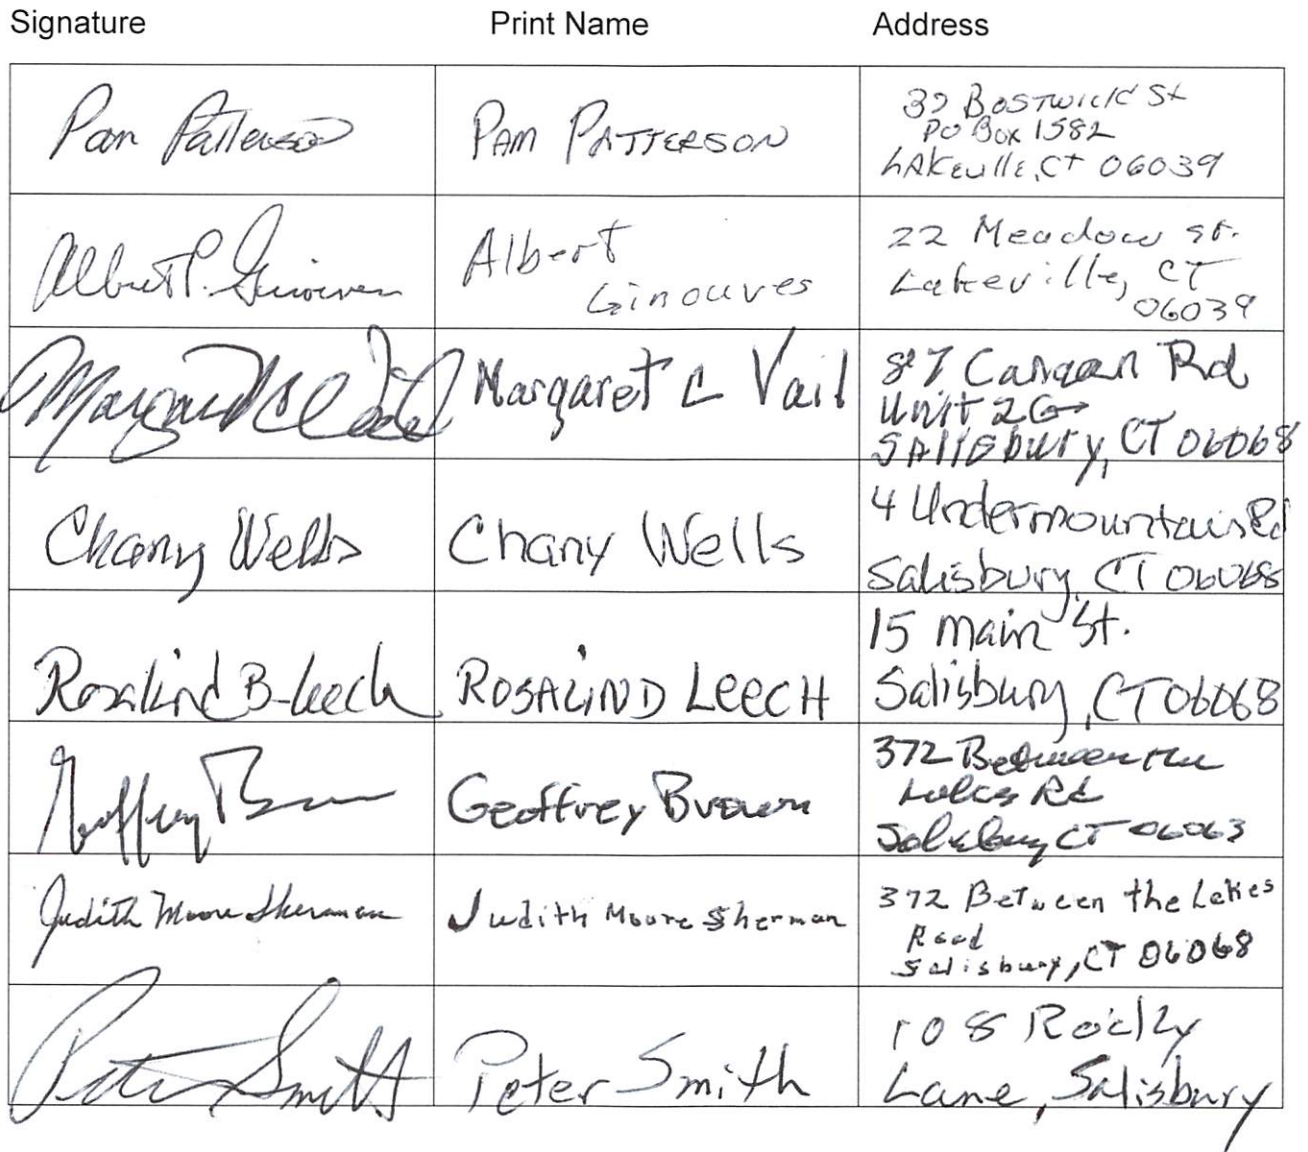 Signature Print Name Address
Pam Patterson PAM PATTERSON 39 Bostwick St
PO Box 1582
LAKEVILLE, CT 06039
Albert P. Ginouves Albert
Ginouves 22 Meadow St.
Lakeville, CT
06039
Margaret C Vail Margaret C Vail 87 Canaan Rd
Unit 2G
SAlisbury, CT 06068
Chany Wells Chany Wells 4 Undermountain Rd
Salisbury, CT 06068
Rosalind B Leech ROSALIND LEECH 15 Main St.
Salisbury, CT 06068
Geoffrey Brown Geoffrey Brown 372 Between the
Lakes Rd
Salisbury CT 06063
Judith Moore Sherman Judith Moore Sherman 372 Between the Lakes
Road
Salisbury, CT 06068
Peter Smith Peter Smith 108
Lane, Salisbury